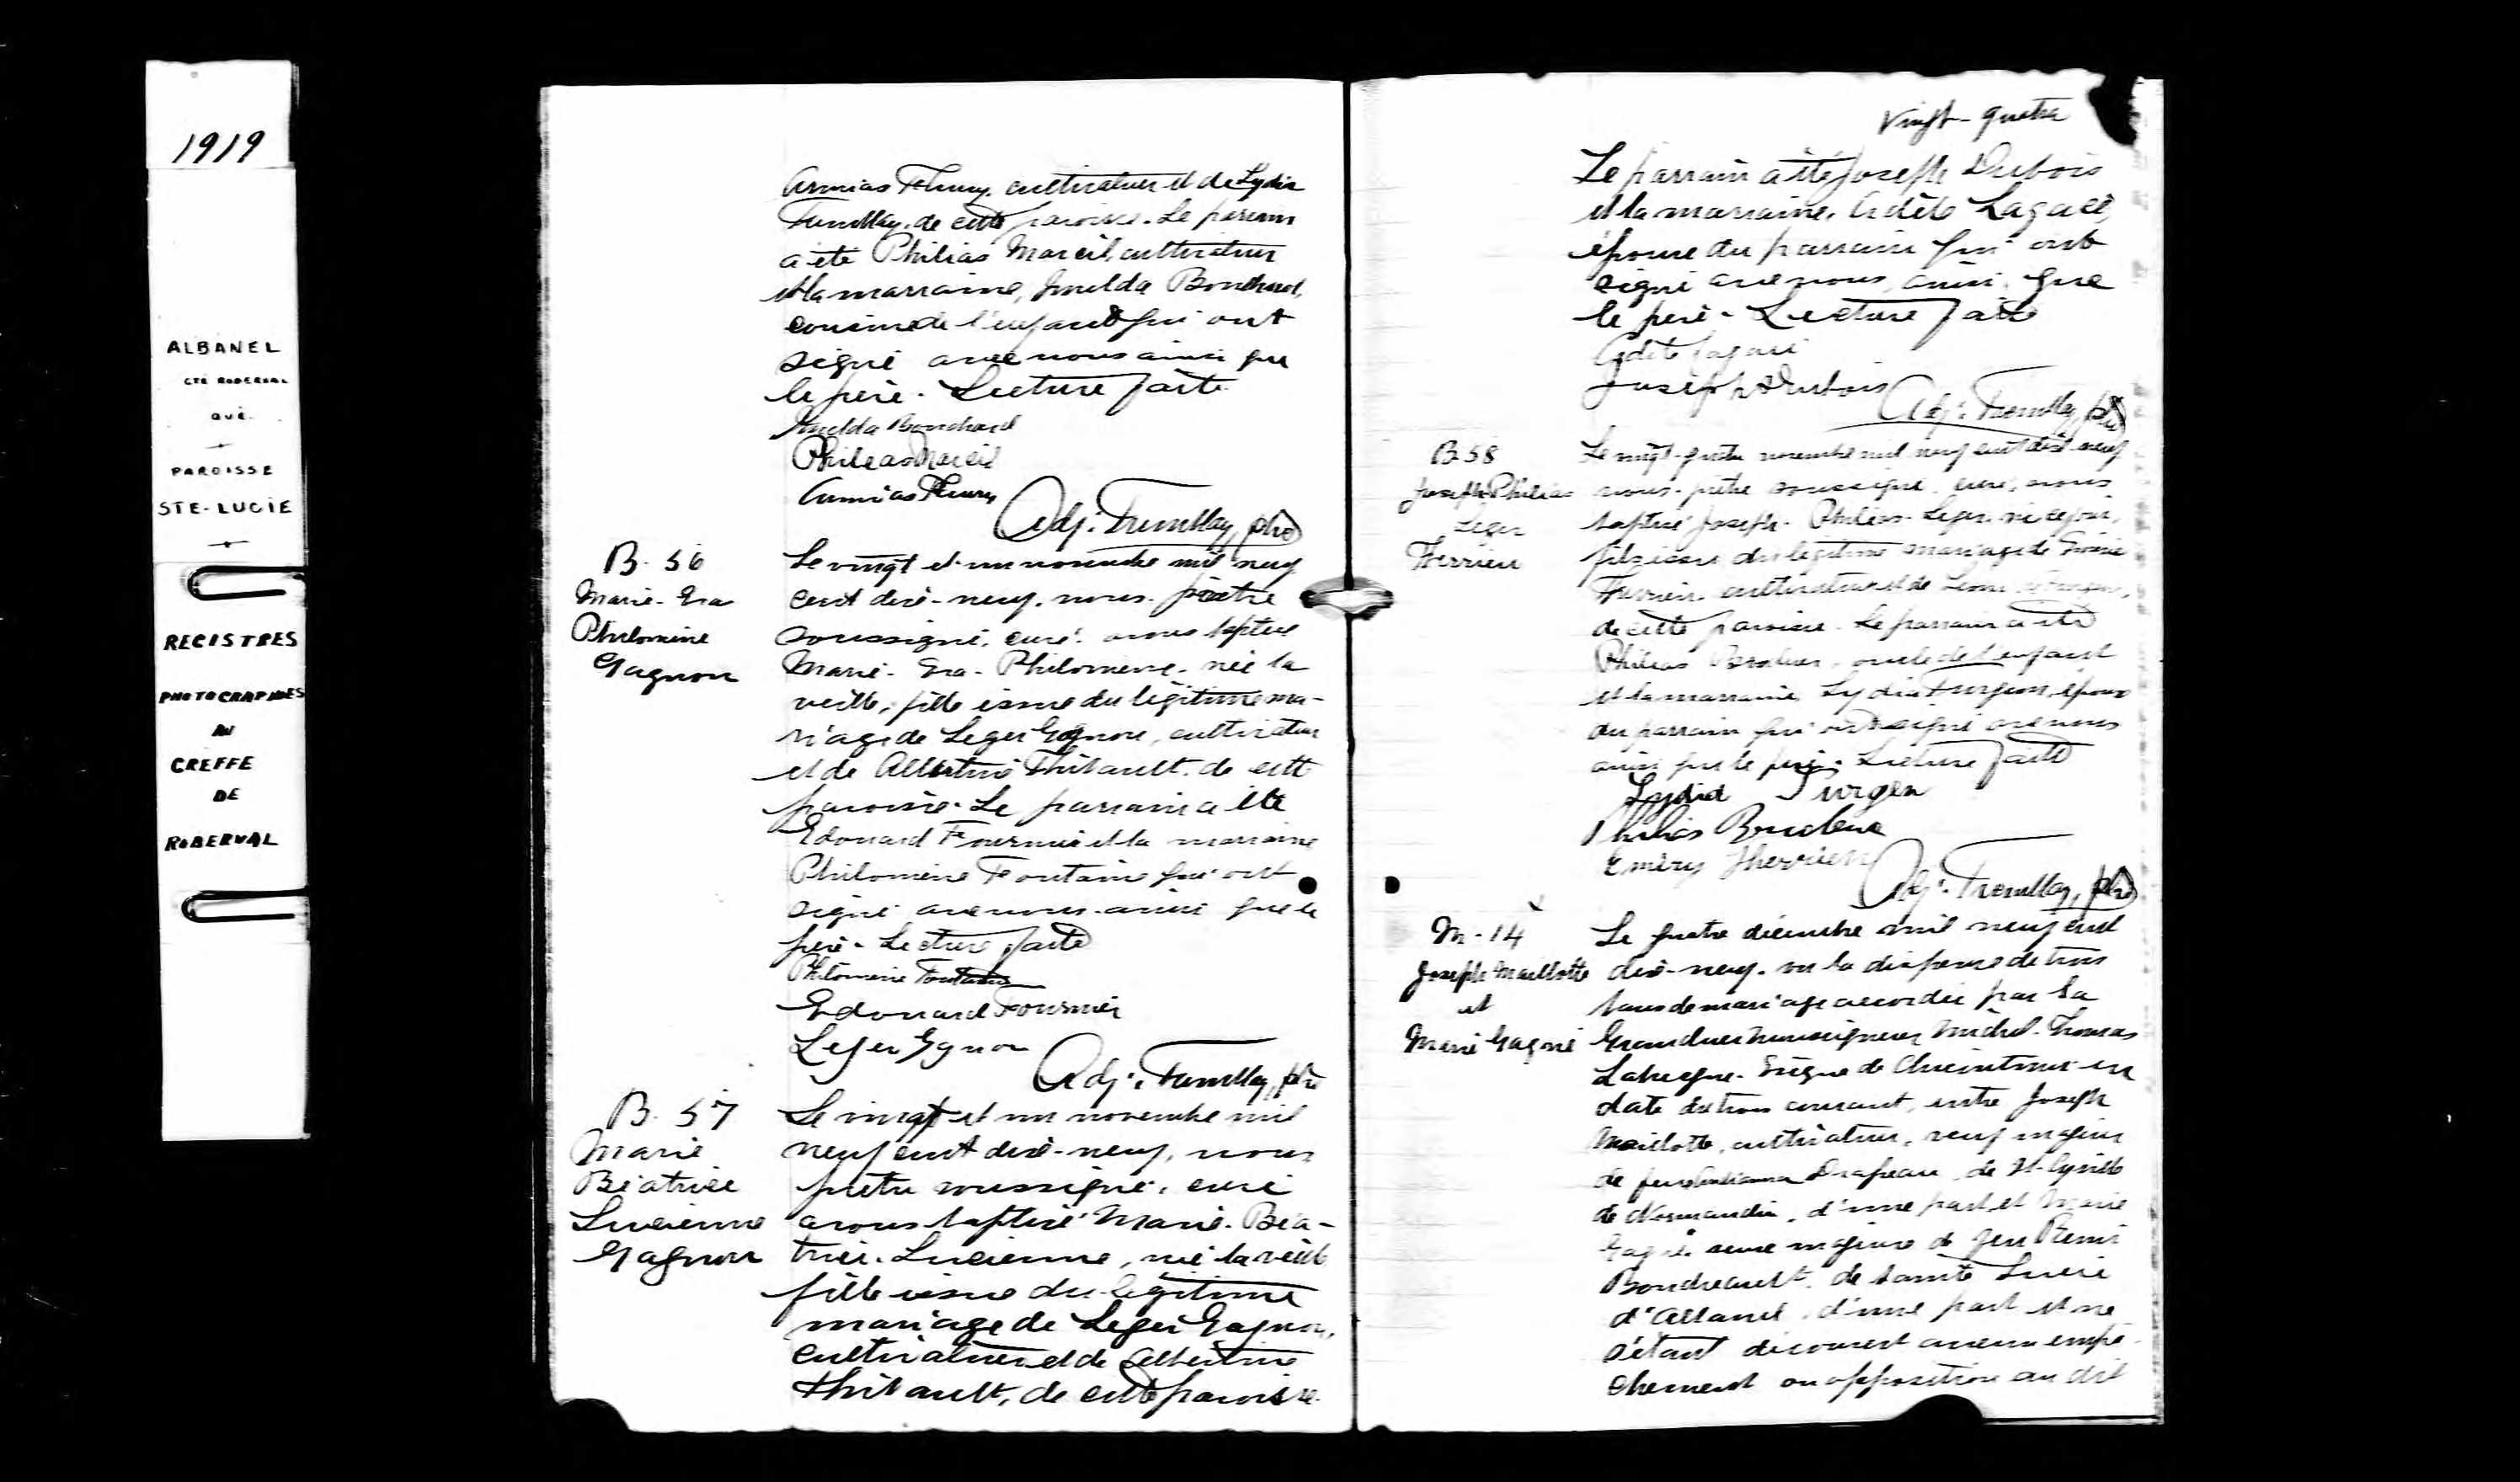 1919
ALBANEL
CTÉ ROBERVAL
QUÉ.
PAROISSE
STE-LUCIE
REGISTRES
PHOTOGRAPHIÉS
AU
GREFFE
DE
ROBERVAL
Armias Fleury, cultivateur et de Lydia
Tremblay, de cette paroisse. Le parrain
a été Philias Mareil, cultivateur
et la marraine, Imelda Bouchard,
cousine de l'enfant qui ont
signé avec nous ainsi que
le père. Lecture faite.
Imelda Bouchard
Phileas Mareil
Armias Fleury
Adj. Tremblay, ptre
B. 56
Marie-Eva
Philomène
Gagnon
Le vingt et un novembre mil neuf
cent dix-neuf, nous prêtre
soussigné, curé, avons baptisé
Marie-Eva-Philomène, née la
veille, fille issue du légitime ma-
riage de Leger Gagnon, cultivateur
et de Albertine Thibault, de cette
paroisse. Le parrain a été
Edouard Fournier et la marraine
Philomène Fontaine qui ont
signé avec nous ainsi que le
père. Lecture faite
Philomène Fontaine
Edouard Fournier
Leger Gagnon
Adj. Tremblay, ptre
B. 57
Marie
Béatrice
Lucienne
Gagnon
Le vingt et un novembre mil
neuf cent dix-neuf, nous
prêtre soussigné, curé
avons baptisé Marie-Béa-
trice-Lucienne, née la veille
fille issue du légitime
mariage de Leger Gagnon,
cultivateur et de Albertine
Thibault, de cette paroisse.
Vingt-quatre
Le parrain a été Joseph Dubois
et la marraine, Adèle Lagacé,
épouse du parrain qui ont
signé avec nous, ainsi que
le père. Lecture faite
Adèle Lagacé
Joseph Dubois
Adj. Tremblay, ptre
B 58
Joseph Philias
Leger
Therrien
Le vingt-quatre novembre mil neuf cent dix-neuf
nous, prêtre soussigné, curé, avons
baptisé Joseph-Philias-Leger, né ce jour,
fils issu du légitime mariage de
Therrien, cultivateur et de
de cette paroisse. Le parrain a été
Philias, oncle de l'enfant
et la marraine Lydia Turgeon, épouse
du parrain qui ont signé avec nous
ainsi que le père. Lecture faite
Lydia Turgen
Philias
Emery Therrien
Adj. Tremblay, ptre
M-14
Joseph Maillotte
et
Marie Gagné
Le quatre décembre mil neuf cent
dix-neuf, vu la dispense de trois
bans de mariage accordée par Sa
Grandeur Monseigneur Michel-Thomas
Labrecque, Evêque de Chicoutimi en
date du trois courant, entre Joseph
Maillotte, cultivateur, veuf majeur
de feue Drapeau, de St-Cyrille
de Normandin, d'une part et Marie
Gagné veuve majeure de feu Rémi
Boudreault, de Sainte Lucie
d'Albanel, d'une part et ne
s'étant découvert aucun empê-
chement ou opposition au dit